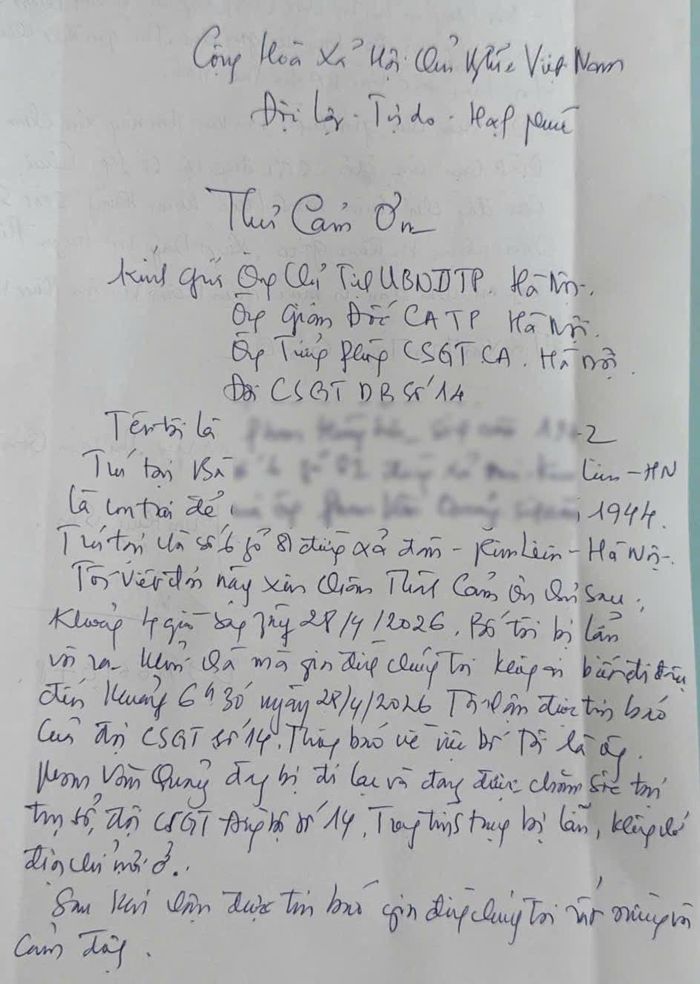 Cộng Hoà Xã Hội Chủ Nghĩa Việt Nam
Độc lập - Tự do - Hạnh phúc
Thư Cảm Ơn
Kính gửi Ông Chủ Tịch UBNDTP. Hà Nội.
Ông Giám Đốc CATP Hà Nội.
Ông Trưởng phòng CSGT CA. Hà Nội.
Đội CSGT ĐB Số 14
Tên tôi là 2
Trú tại Liên - HN
là con trai đẻ 1944.
Trú tại nhà số 6 tổ 81 đường xã đàn - Kim Liên - Hà Nội.
Tôi viết đơn này xin chân Thành Cảm Ơn như sau:
Khoảng 4 giờ sáng ngày 28/4/2026. Bố tôi bị lẫn
và ra khỏi nhà mà gia đình chúng tôi không ai biết đi đâu
đến khoảng 6h30 ngày 28/4/2026 Tôi nhận được tin báo
của đội CSGT số 14. Thông báo về việc bố Tôi là ông.
Văn Quảng đang bị đi lạc và đang được chăm sóc tại
trụ sở, đội CSGT đường bộ số 14, Trong tình trạng bị lẫn, không nhớ
địa chỉ nơi ở.
Sau khi nhận được tin báo gia đình chúng tôi rất mừng và
cảm động.